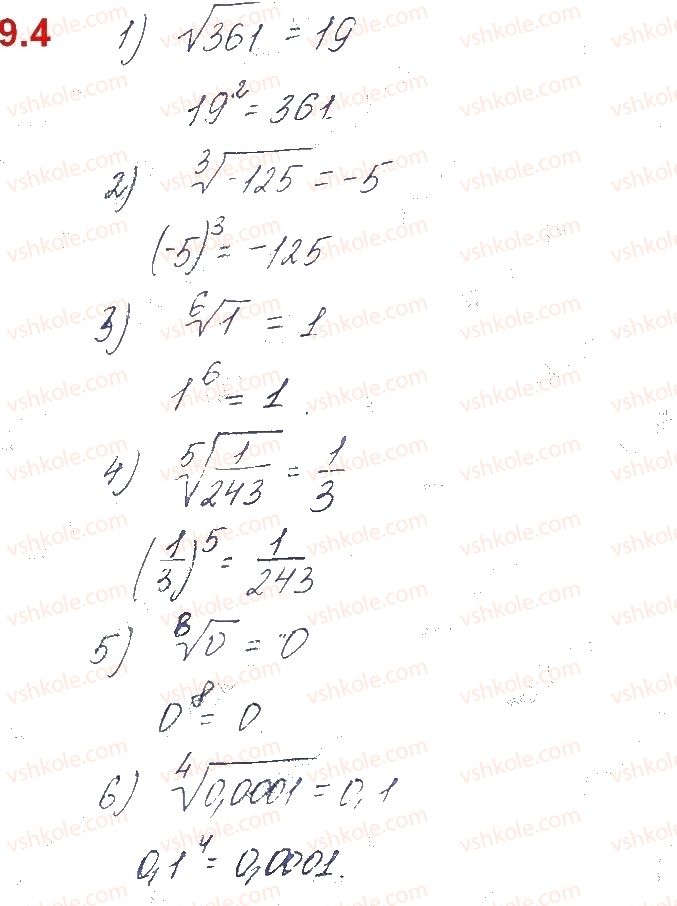 9.4
1) √361 = 19
19² = 361.
2) ³√-125 = -5
(-5)³ = -125
3) ⁶√1 = 1
1⁶ = 1.
4) ⁵√(1/243) = 1/3
(1/3)⁵ = 1/243
5) ⁸√0 = 0
0⁸ = 0.
6) ⁴√0,0001 = 0,1
0,1⁴ = 0,0001.
vshkole.com